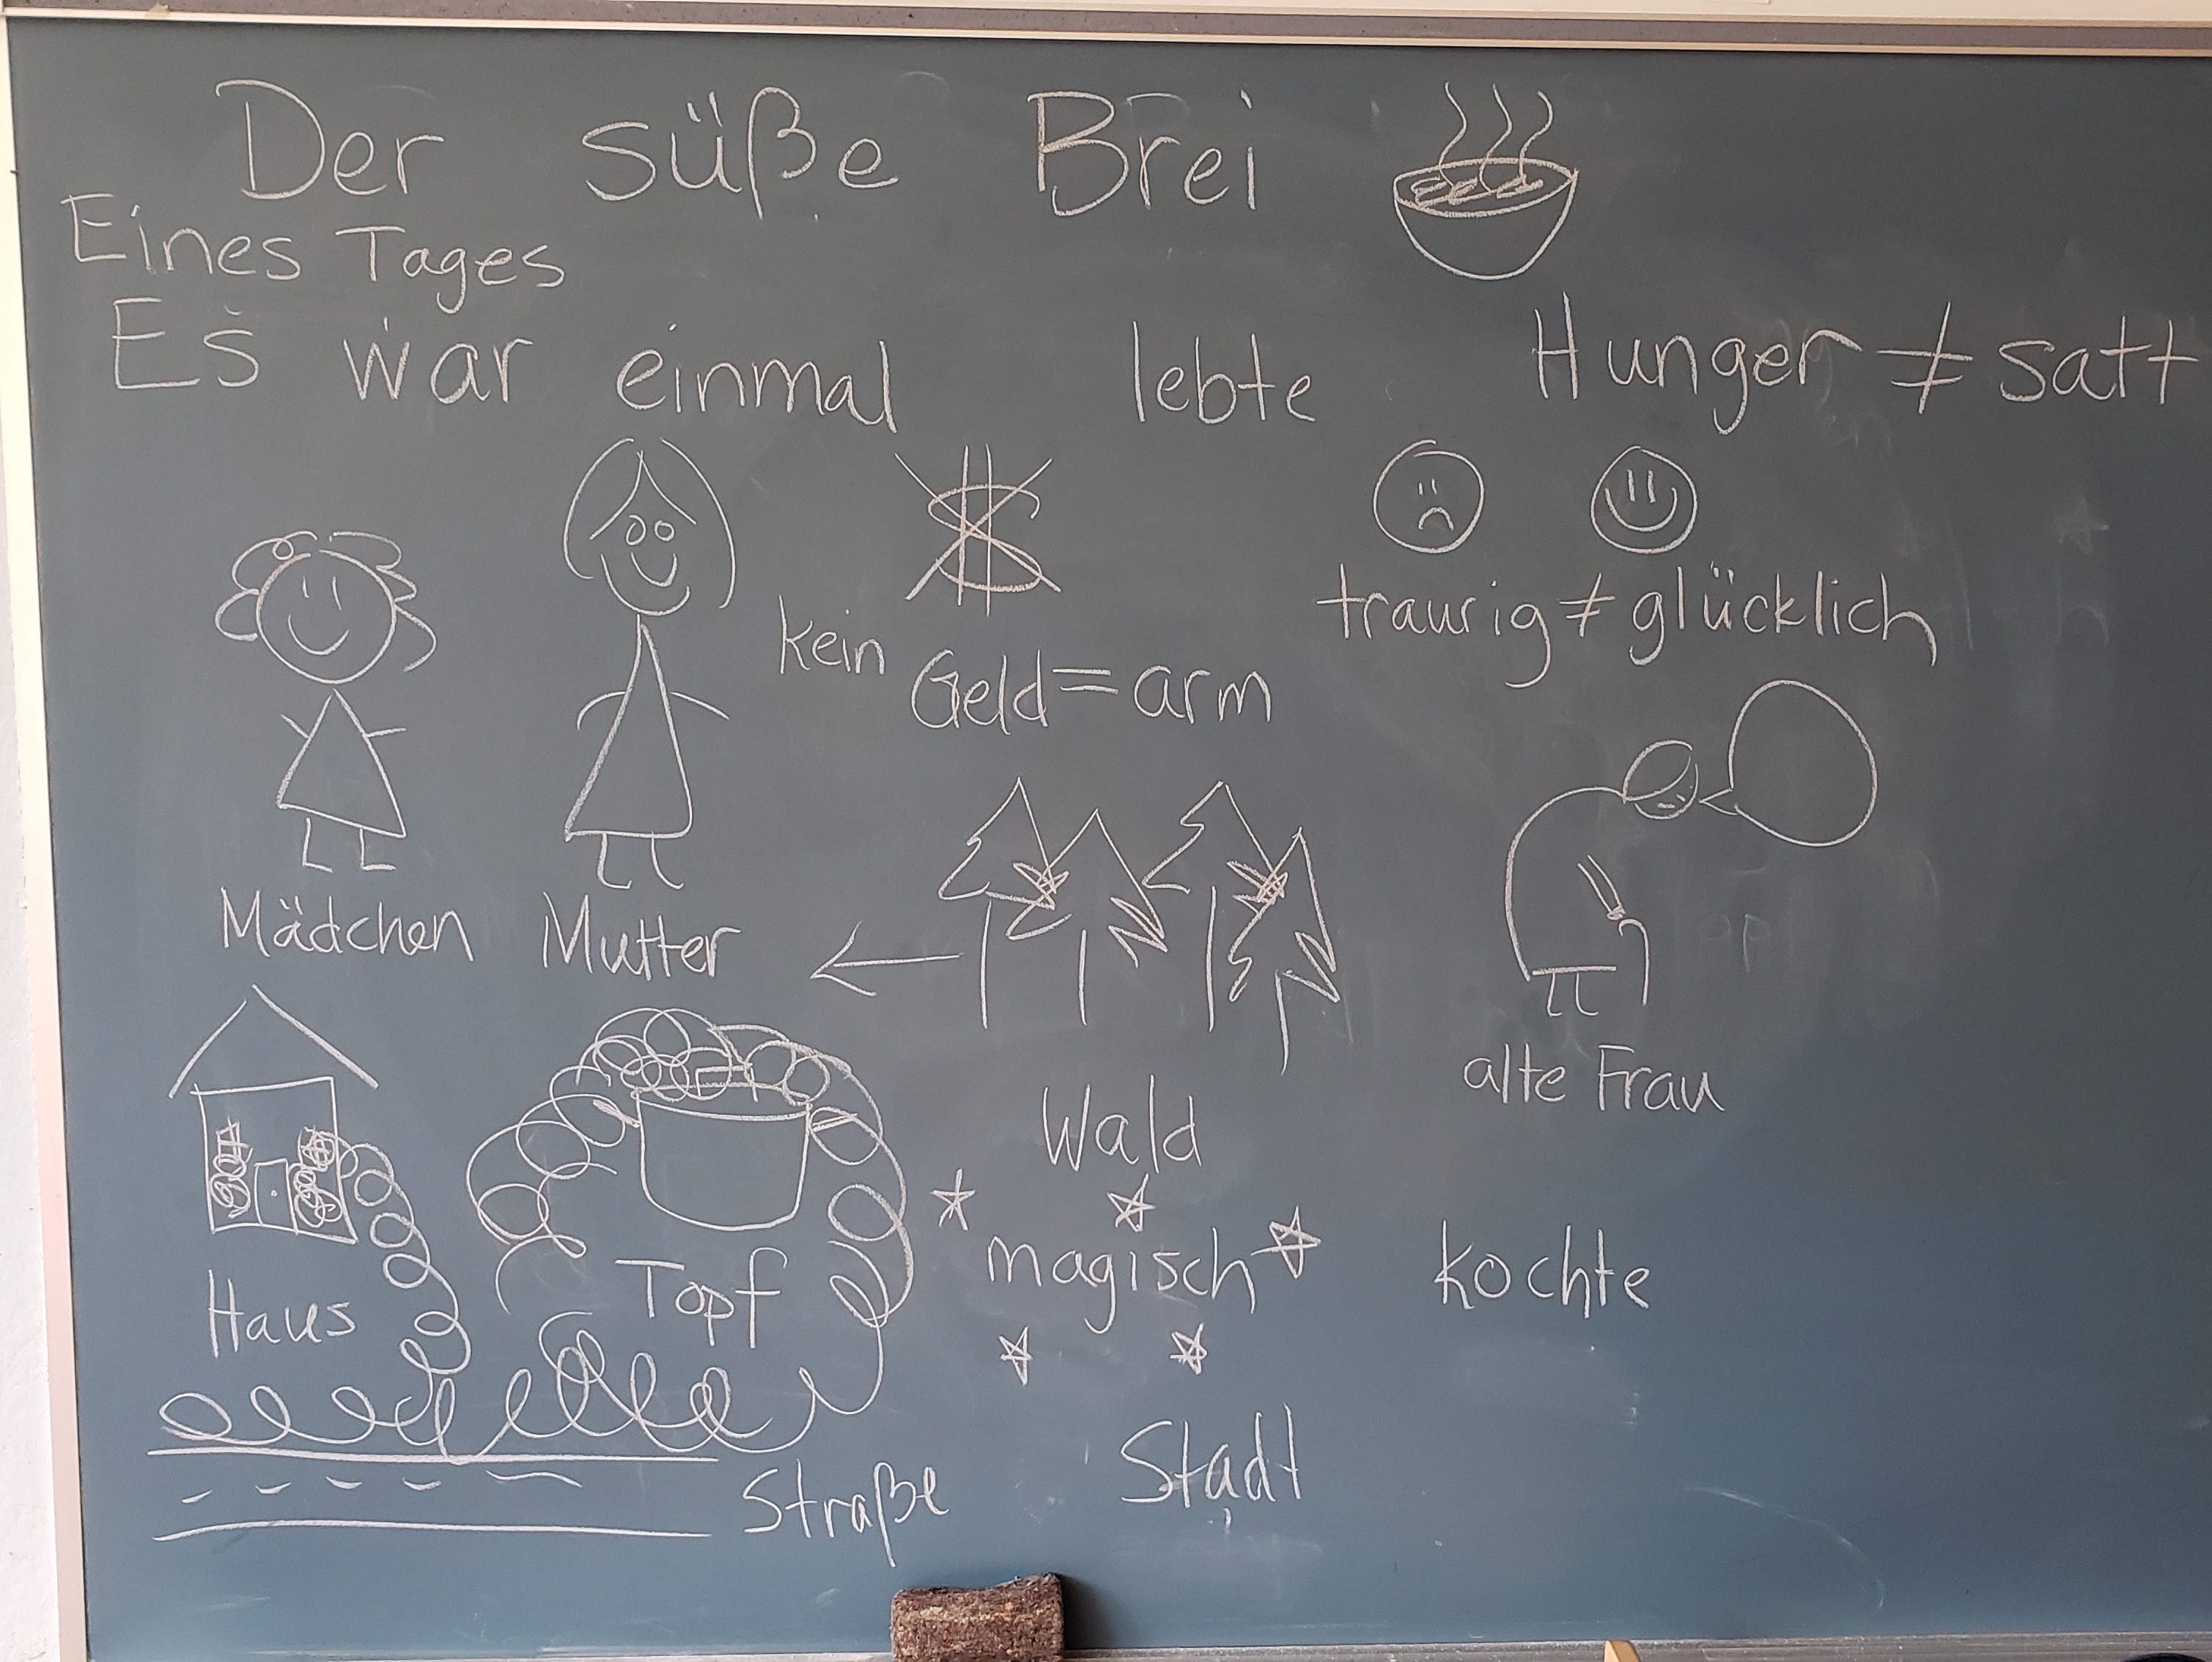 Der süße Brei
Eines Tages
Es war einmal lebte Hunger ≠ satt
kein Geld = arm
traurig ≠ glücklich
Mädchen Mutter
alte Frau
Wald
magisch
kochte
Haus
Topf
Straße
Stadt